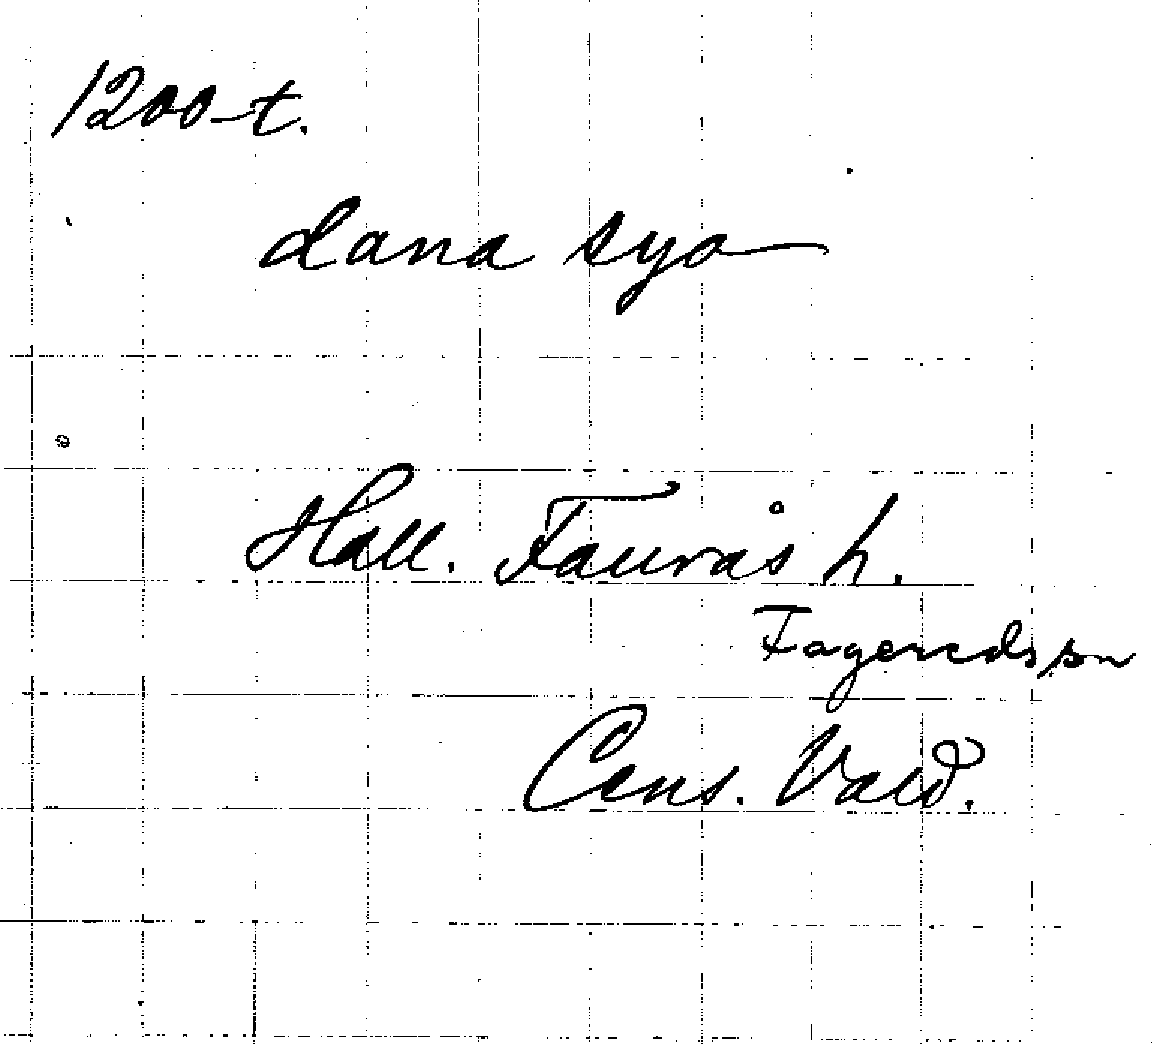 1200-t.
dana sya
Hall. Faurås h.
Fageredssn
Cens. Vald.